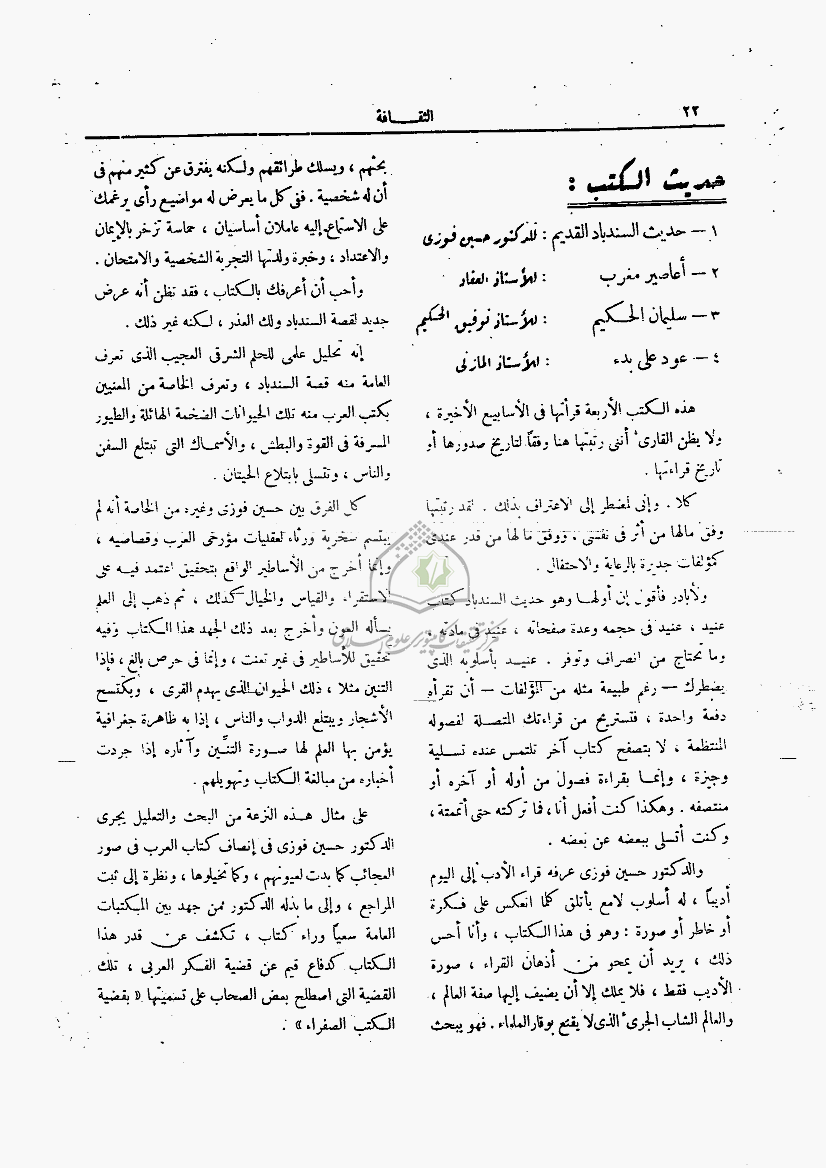 ٢٢
الثقـــافة
حديث الكتب :
١ — حديث السندباد القديم : للدكتور حسين فوزى
٢ — أعاصير مغرب : للأستاذ العقاد
٣ — سليمان الحكيم : للأستاذ توفيق الحكيم
٤ — عود على بدء : للأستاذ المازنى
هذه الكتب الأربعة قرأتها فى الأسابيع الأخيرة ،
ولا يظن القارئ أننى رتبتها هنا وفقاً لتاريخ صدورها أو
تاريخ قراءتها .
كلا . وإنى لمضطر إلى الاعتراف بذلك . لقد رتبتها
وفق مالها من أثر فى نفسى ، ووفق مالها من قدر عندى
كمؤلفات جديرة بالرعاية والاحتفال .
ولأبادر فأقول إن أولها وهو حديث السندباد كتاب
عنيد ، عنيد فى حجمه وعدة صفحاته ، عنيد فى مادته ،
وما يحتاج من انصراف وتوفر . عنيد بأسلوبه الذى
يضطرك — رغم طبيعة مثله من المؤلفات — أن تقرأه
دفعة واحدة ، فتستريح من قراءتك المتصلة لفصوله
المنتظمة ، لا بتصفح كتاب آخر تلتمس عنده تسلية
وجيزة ، وإنما بقراءة فصول من أوله أو آخره أو
منتصفه . وهكذا كنت أفعل أنا ، فما تركته حتى أتممتة ،
وكنت أتسلى ببعضه عن بعضه .
والدكتور حسين فوزى عرفه قراء الأدب إلى اليوم
أديباً ، له أسلوب لامع يأتلق كلما انعكس على فكرة
أو خاطر أو صورة : وهو فى هذا الكتاب ، وأنا أحس
ذلك ، يريد أن يمحو من أذهان القراء ، صورة
الأديب فقط ، فلا يملك إلا أن يضيف إليها صفة العالم ،
والعالم الشاب الجرىء الذى لا يقنع بوقار العلماء . فهو يبحث
بحثهم ، ويسلك طرائقهم ولكنه يفترق عن كثير منهم فى
أن له شخصية . ففى كل ما يعرض له مواضيع رأى يرغمك
على الاستماع إليه عاملان أساسيان ، حماسة تزخر بالإيمان
والاعتداد ، وخبرة ولدتها التجربة الشخصية والامتحان .
وأحب أن أعرفك بالكتاب ، فقد تظن أنه عرض
جديد لقصة السندباد ولك العذر ، لكنه غير ذلك .
إنه تحليل علمى للحلم الشرقى العجيب الذى تعرف
العامة منه قصة السندباد ، وتعرف الخاصة من المعنيين
بكتب العرب منه تلك الحيوانات الضخمة الهائلة والطيور
المسرفة فى القوة والبطش ، والأسماك التى تبتلع السفن
والناس ، وتتسلى بابتلاع الحيتان .
كل الفرق بين حسين فوزى وغيره من الخاصة أنه لم
يبتسم سخرية ورثاء لعقليات مؤرخى العرب وقصاصيه ،
وإنما أخرج من الأساطير الواقع بتحقيق اعتمد فيه على
الاستقراء والقياس والخيال كذلك ، ثم ذهب إلى العلم
يسأله العون وأخرج بعد ذلك الجهد هذا الكتاب وفيه
تحقيق للأساطير فى غير تعنت ، وإنما فى حرص بالغ ، فإذا
التنين مثلا ، ذلك الحيوان الذى يهدم القرى ، ويكتسح
الأشجار ويبتلع الدواب والناس ، إذا به ظاهرة جغرافية
يؤمن بها العلم لها صورة التنّين وآثاره إذا جردت
أخباره من مبالغة الكتاب وتهويلهم .
على مثال هذه النزعة من البحث والتعليل يجرى
الدكتور حسين فوزى فى إنصاف كتاب العرب فى صور
العجائب كما بدت لعيونهم ، وكما تخيلوها ، ونظرة إلى ثبت
المراجع ، وإلى ما بذله الدكتور من جهد بين المكتبات
العامة سعياً وراء كتاب ، تكشف عن قدر هذا
الكتاب كدفاع قيم عن قضية الفكر العربى ، تلك
القضية التى اصطلح بعض الصحاب على تسميتها « بقضية
الكتب الصفراء » .